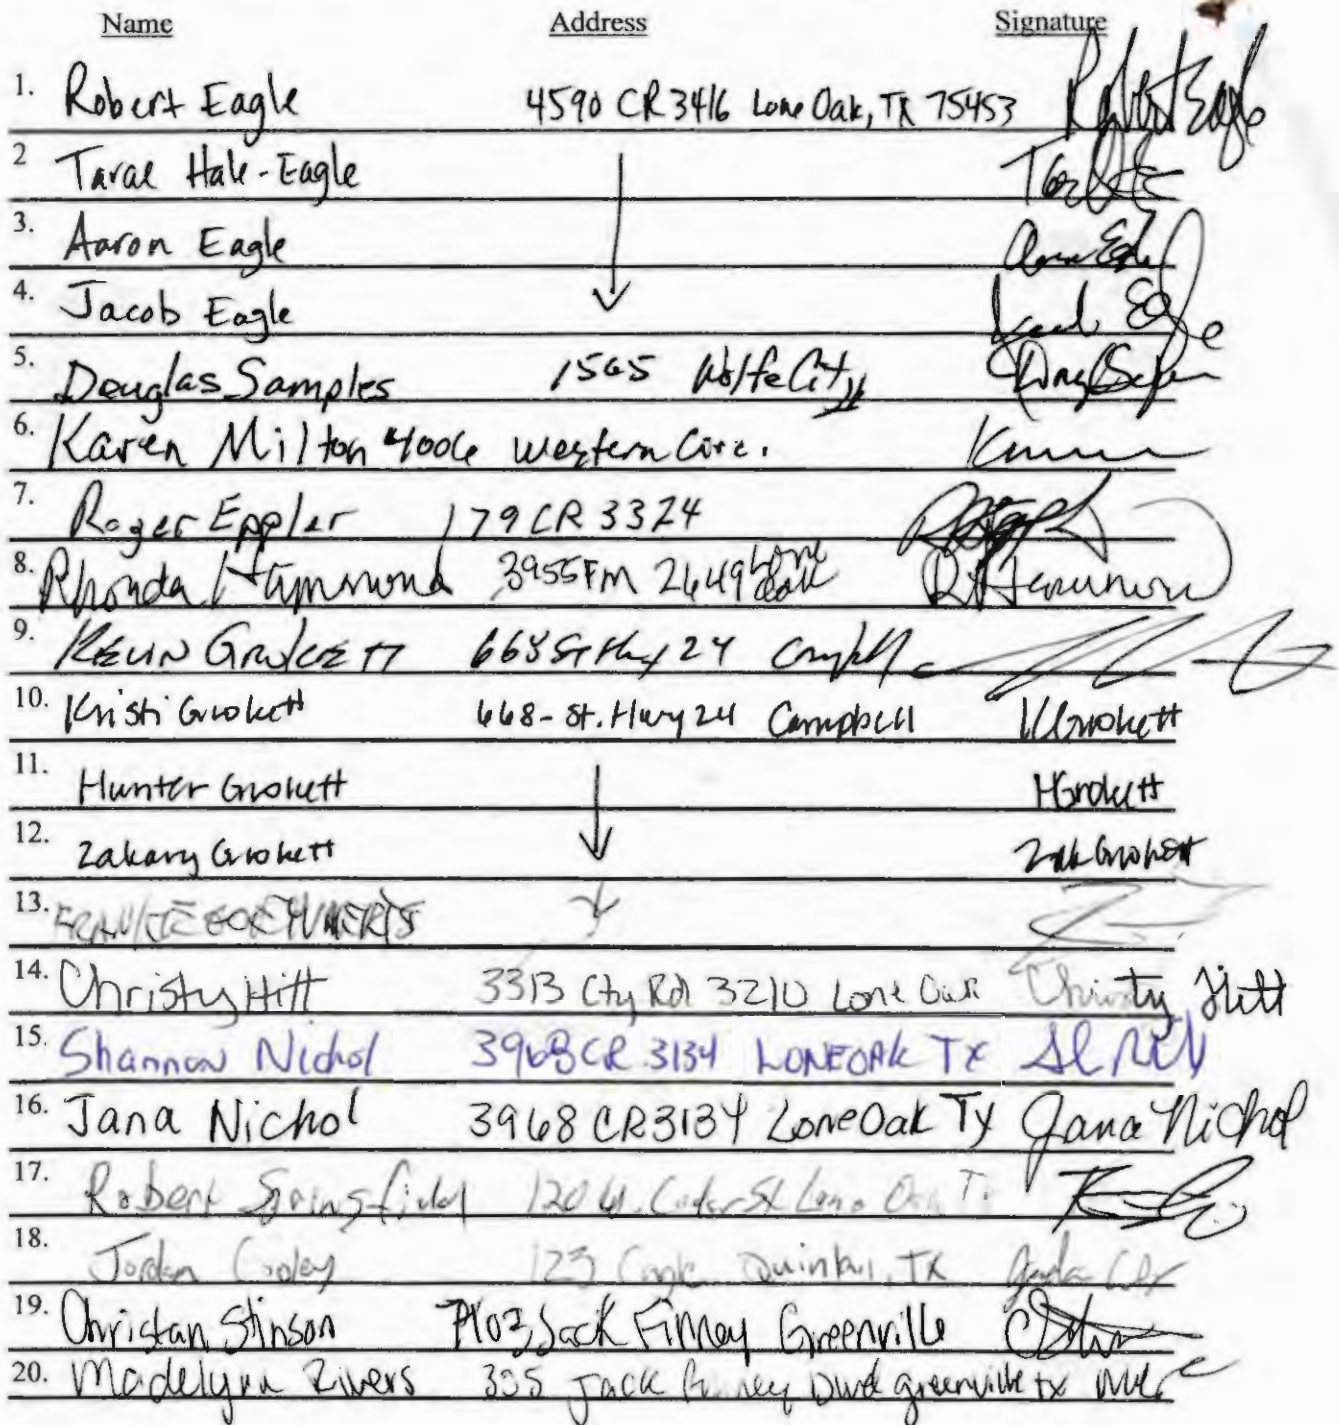 Name Address Signature
1. Robert Eagle 4590 CR 3416 Lone Oak, TX 75453 Robert Eagle
2 Tarae Hale-Eagle
3. Aaron Eagle
4. Jacob Eagle
5. Douglas Samples 1565 Wolfe City
6. Karen Milton 4006 Western Circ.
7. Roger Eppler 179 CR 3324
8. Rhonda Hammond 3955 FM 2649 Lone Oak R Hammond
9. Kevin Grokett 668 St Hwy 24 Campbell
10. Kristi Grokett 668-St. Hwy 24 Campbell K Grokett
11. Hunter Grokett H Grokett
12. Zakary Grokett Zak Grokett
13.
14. Christy Hitt 3313 Cty Rd 3210 Lone Oak Christy Hitt
15. Shannon Nichol 3968 CR 3134 LONE OAK TX
16. Jana Nichol 3968 CR 3134 Lone Oak TX Jana Nichol
17. Robert Springfield 120 W. Cedar St Lone Oak Tx
18. Jordan Cooley 123 Quinlan, TX
19. Christan Stinson 7103 Jack Finney Greenville
20. Madelynn Rivers 335 Jack Finney Blvd greenville tx